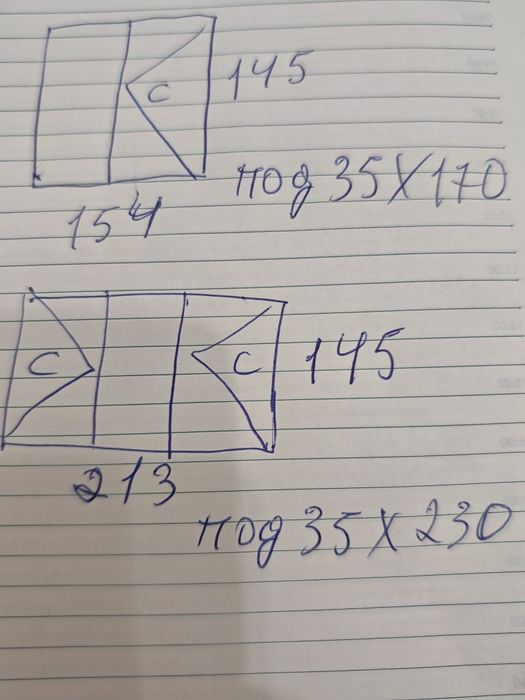 C
145
154
под 35X170
C
C
145
213
под 35X230